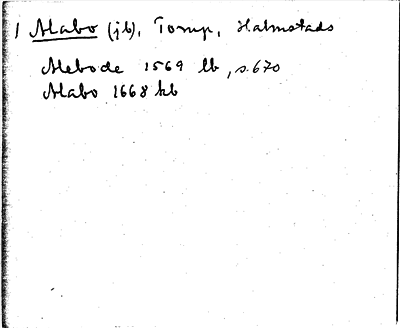 1 Alabo (jb), Torup, Halmstads
Alebode 1569 lb, s. 670
Alabo 1668 kb